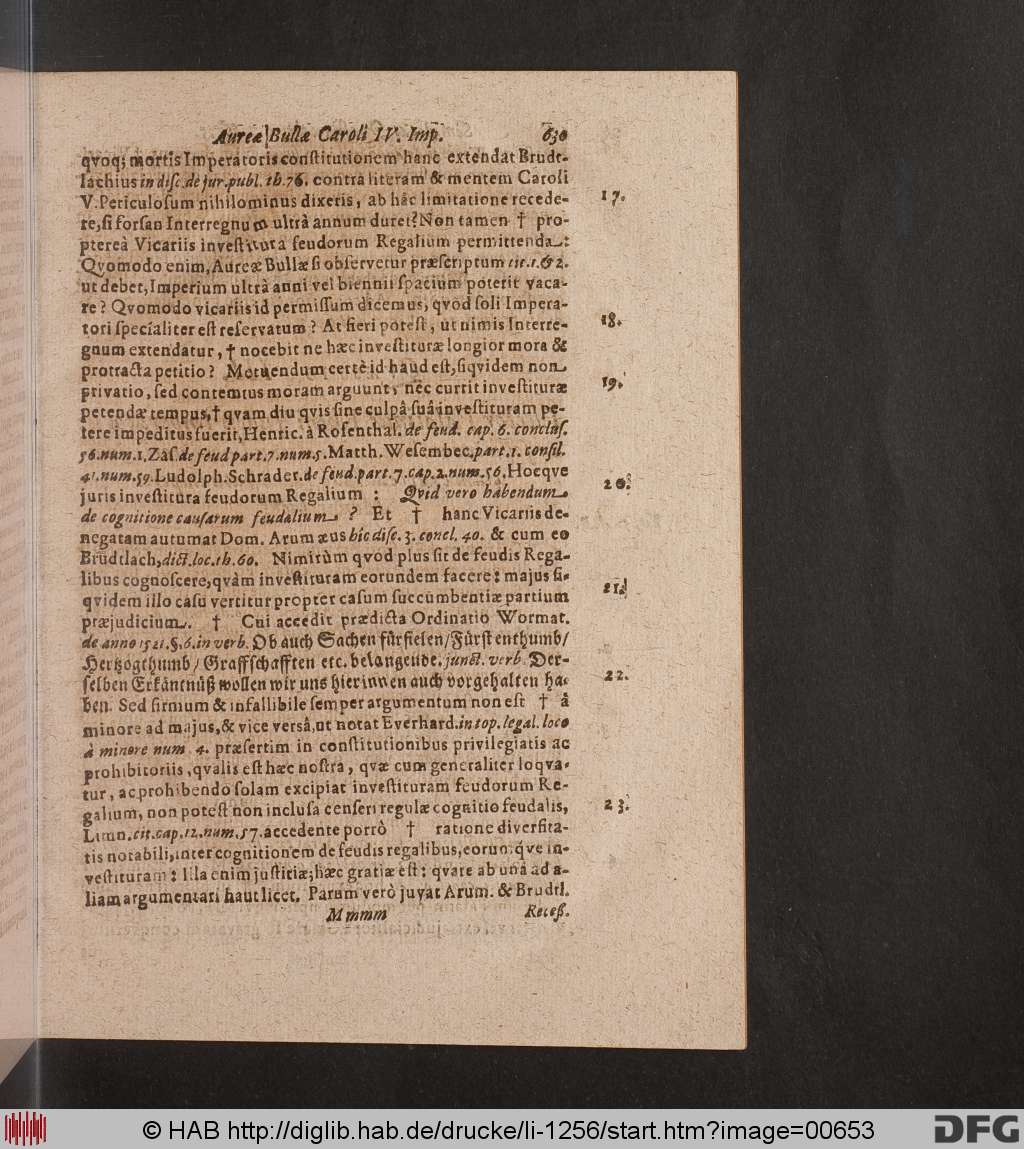 Aureæ Bullæ Caroli IV. Imp. 630
qvoq; mortis Imperatoris constitutionem hanc extendat Brudt-
lachius in disc. de jur. publ. th. 76. contra literam & mentem Caroli
V. Periculosum nihilominus dixeris, ab hâc limitatione recede- 17.
re, si forsan Interregnum ultrà annum duret? Non tamen † pro-
ptereà Vicariis investitura feudorum Regalium permittenda:
Qvomodo enim, Aureæ Bullæ si observetur præscriptum tit. 1. & 2.
ut debet, Imperium ultrà anni vel biennii spacium poterit vaca-
re? Qvomodo vicariis id permissum dicemus, qvod soli Impera-
tori specialiter est reservatum? At fieri potest, ut nimis Interre- 18.
gnum extendatur, † nocebit ne hæc investituræ longior mora &
protracta petitio? Metuendum certè id haud est, siqvidem non
privatio, sed contemtus moram arguunt, nec currit investituræ 19.
petendæ tempus, † qvam diu qvis sine culpâ suâ investituram pe-
tere impeditus fuerit, Henric. à Rosenthal. de feud. cap. 6. conclus.
56. num. 1. Zas. de feud part. 7. num. 5. Matth. Wesembec. part. 1. consil.
41. num. 59. Ludolph. Schrader. de feud. part. 7. cap. 2. num. 56. Hocqve
juris investitura feudorum Regalium: Qvid vero habendum 20.
de cognitione causarum feudalium? Et † hanc Vicariis de-
negatam autumat Dom. Arumæus hîc disc. 3. concl. 40. & cum eo
Brüdtlach, dict. loc. th. 60. Nimirùm qvod plus sit de feudis Rega-
libus cognoscere, qvàm investituram eorundem facere: majus si-
qvidem illo casu vertitur propter casum succumbentiæ partium 21.
præjudicium. † Cui accedit prædicta Ordinatio Wormat.
de anno 1521. §. 6. in verb. Ob auch Sachen fürfielen / Fürstenthumb /
Hertzogthumb / Graffschafften etc. belangende. junct. verb. Der-
selben Erkäntnüß wollen wir uns hierinnen auch vorgehalten ha- 22.
ben. Sed firmium & infallibile semper argumentum non est † â
minore ad majus, & vice versâ, ut notat Everhard. in top. legal. loco
à minore num. 4. præsertim in constitutionibus privilegiatis ac
prohibitoriis, qvalis est hæc nostra, qvæ cum generaliter loqva-
tur, ac prohibendo solam excipiat investituram feudorum Re-
galium, non potest non inclusa censeri regulæ cognitio feudalis, 23.
Limn. cit. cap. 12. num. 57. accedente porrò † ratione diversita-
tis notabili, inter cognitionem de feudis regalibus, eorumqve in-
vestituram: Illa enim justitiæ; hæc gratiæ est: qvare ab unâ ad a-
liam argumentari haut licet. Parum verò juvat Arum. & Brudtl.
Mmmm Receß.
© HAB http://diglib.hab.de/drucke/li-1256/start.htm?image=00653
DFG